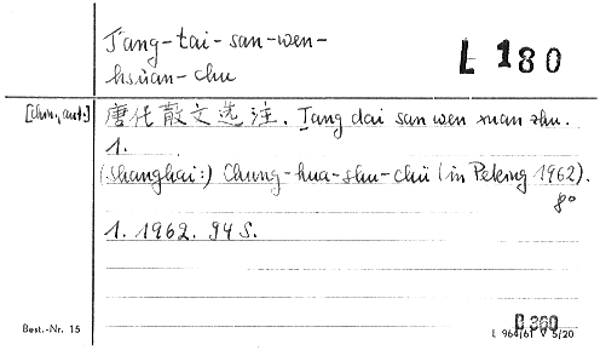 T'ang-tai-san-wen-
hsüan-chu
L 180
[chin., aut.:] 唐代散文选注. Tang dai san wen xuan zhu.
1.
(Shanghai:) Chung-hua-shu-chü (in Peking 1962).
8°
1. 1962. 94 S.
B 360
Best.-Nr. 15
L 964/61 V 5/20